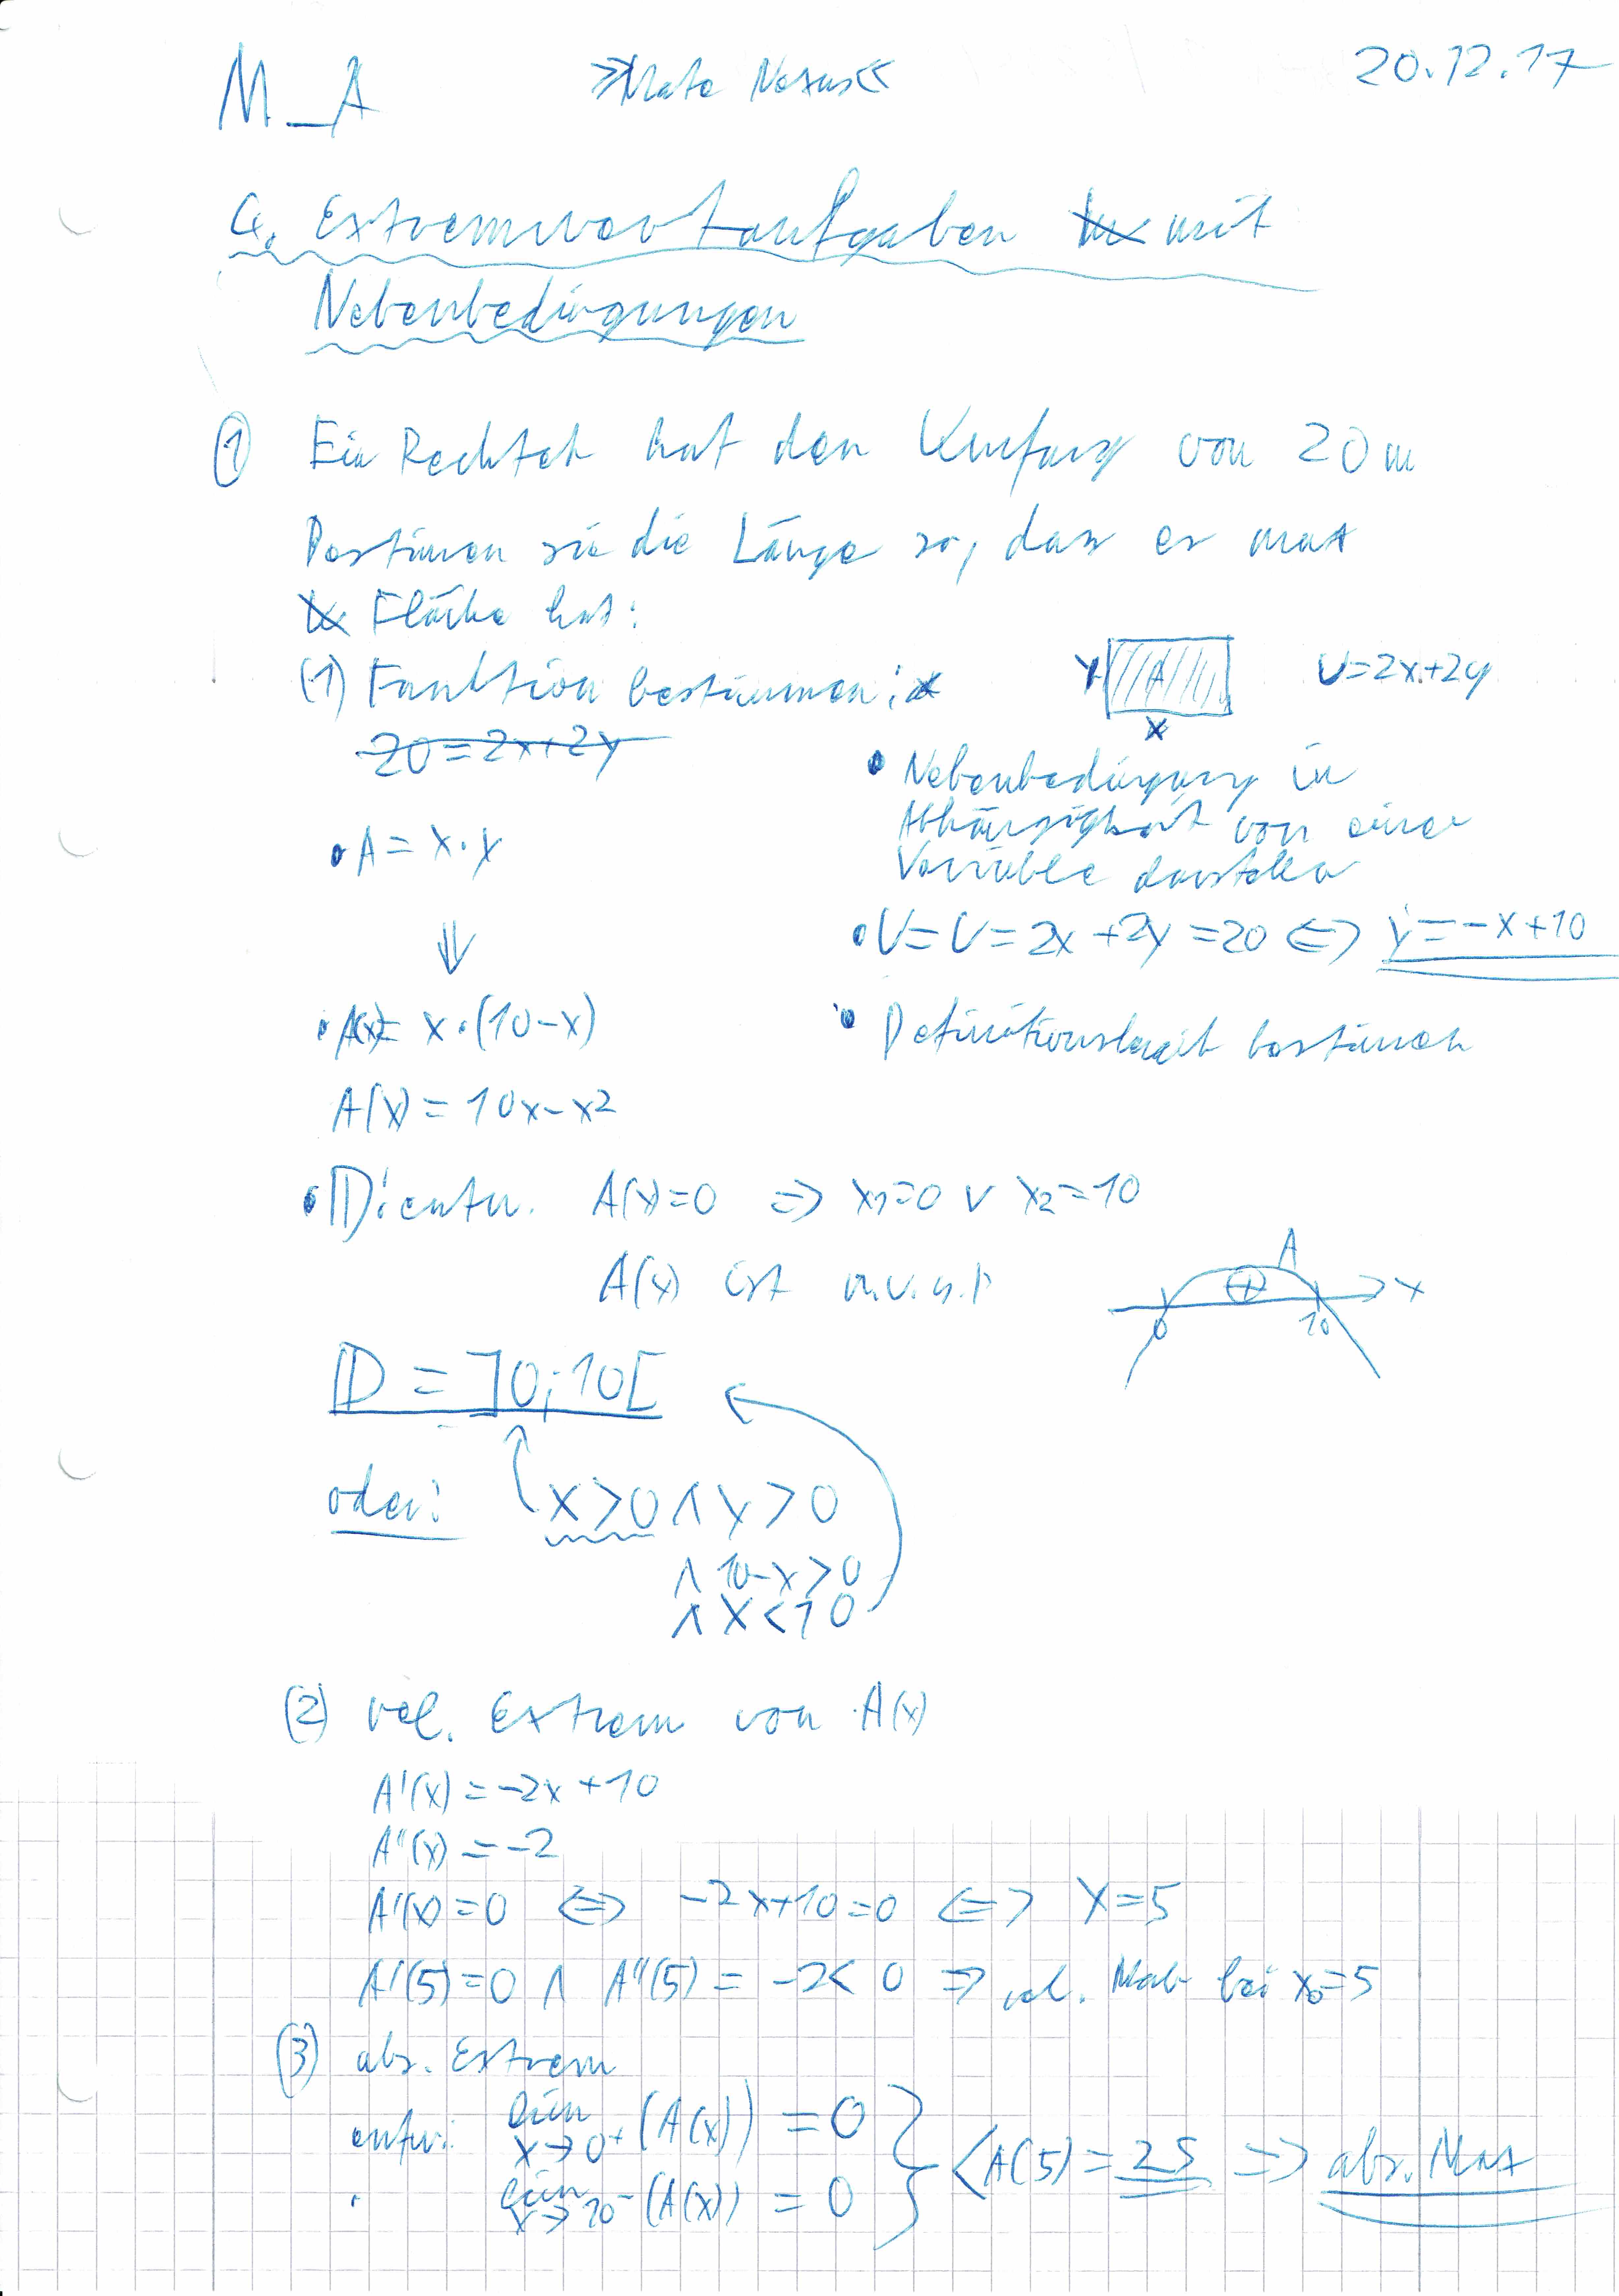 M_A »Mate Nexus« 20.12.17
4. Extremwertaufgaben mit
Nebenbedingungen
① Ein Rechteck hat den Umfang von 20m
Bestimmen sie die Länge so, dass es max
Fläche hat:
(1) Funktion bestimmen:
y A x U=2x+2y
20=2x+2y
• Nebenbedingung in
Abhängigkeit von einer
Variable darstellen
• A = x·y
⇓
• U=U=2x+2y=20 ⇔ y=-x+10
• A(x)= x·(10-x)
• Definitionsbereich bestimmen
A(x) = 10x-x2
• D: entw. A(x)=0 ⇒ x1=0 ∨ x2=10
A(x) ist n.u.g.P
A ⊕ x 0 10
D = ]0;10[
oder: x>0 ∧ y>0
∧ 10-x>0
∧ x<10
(2) rel. Extrem von A(x)
A'(x) = -2x+10
A''(x) = -2
A'(x)=0 ⇔ -2x+10=0 ⇔ x=5
A'(5)=0 ∧ A''(5) = -2<0 ⇒ rel. Max bei x0=5
(3) abs. Extrem
lim x→0+ (A(x)) = 0
lim x→10- (A(x)) = 0
} <A(5)=25 ⇒ abs. Max